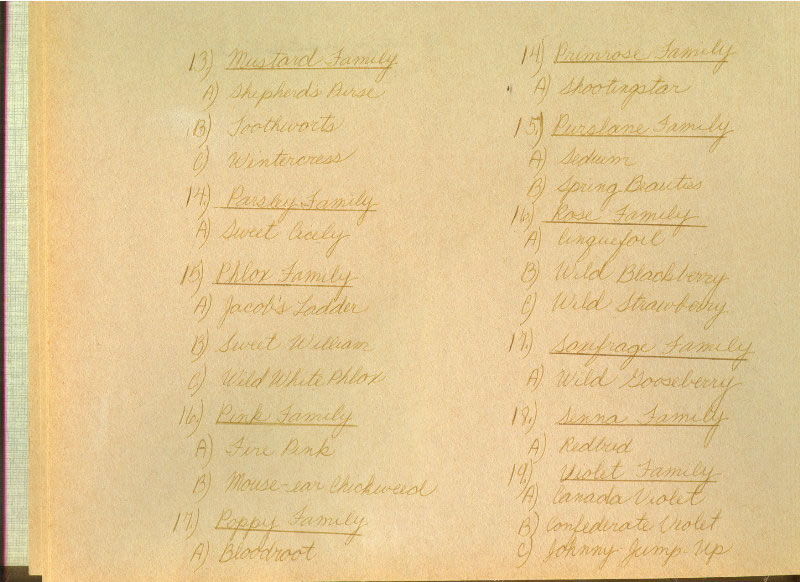 13) Mustard Family
A) Shepherds Purse
B) Toothworts
C) Wintercress
14) Parsley Family
A) Sweet Cicely
15) Phlox Family
A) Jacob's Ladder
B) Sweet William
C) Wild White Phlox
16) Pink Family
A) Fire Pink
B) Mouse-ear Chickweed
17) Poppy Family
A) Bloodroot
14) Primrose Family
A) Shootingstar
15) Purslane Family
A) Sedum
B) Spring Beauties
16) Rose Family
A) Cinquefoil
B) Wild Blackberry
C) Wild Strawberry
17.) Saxifrage Family
A) Wild Gooseberry
18.) Senna Family
A) Redbud
19.) Violet Family
A) Canada Violet
B) Confederate Violet
C) Johnny Jump-Up